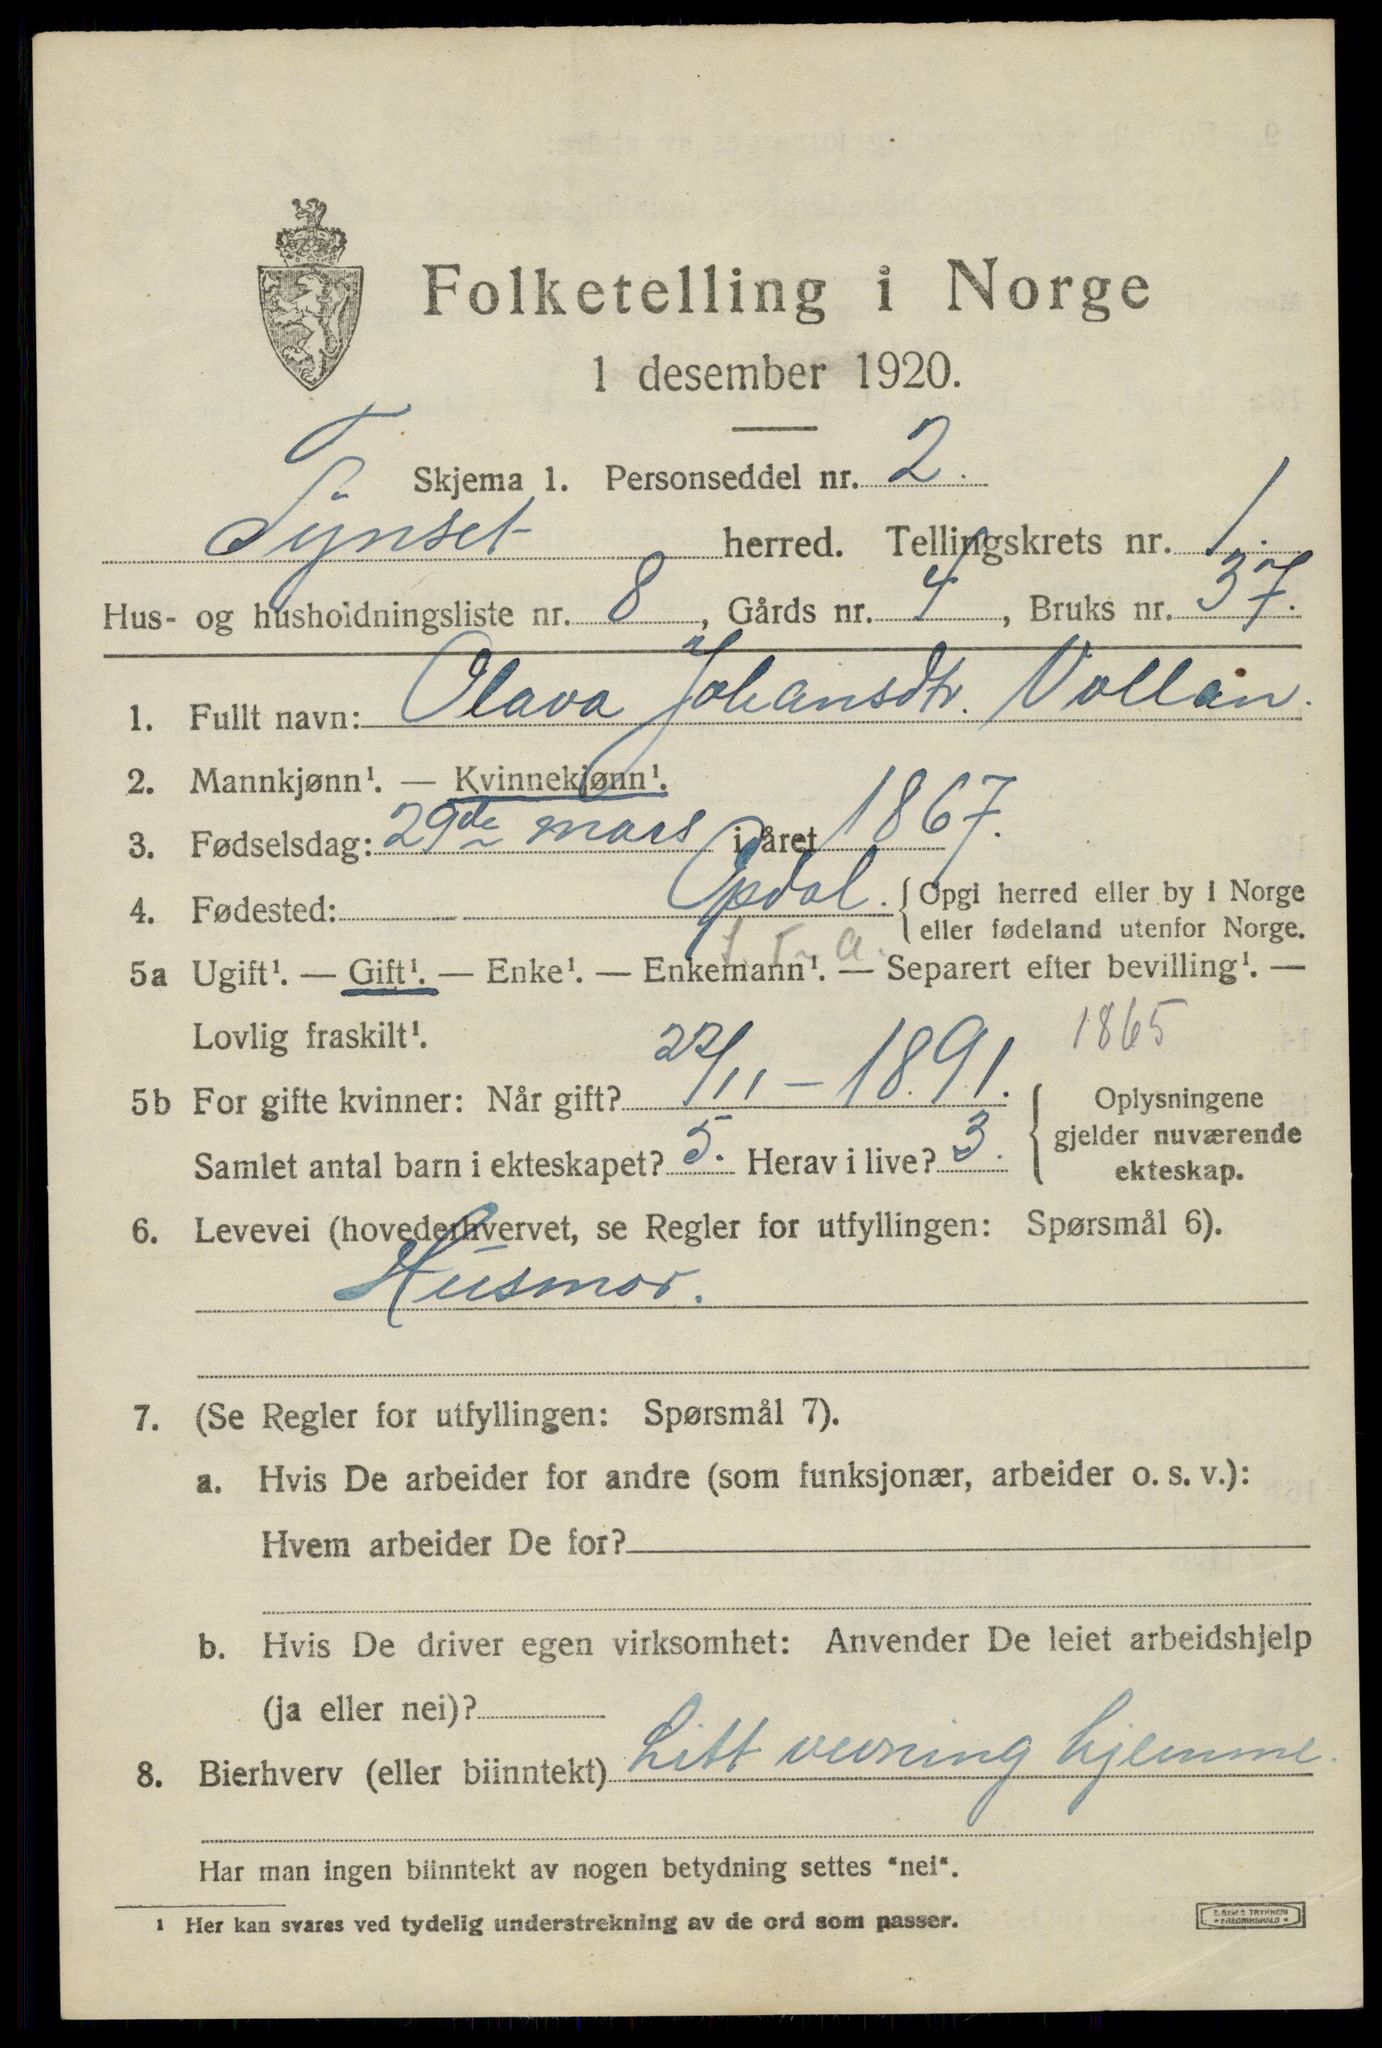 Folketelling i Norge
1 desember 1920.
Skjema 1. Personseddel nr. 2.
Tynset herred. Tellingskrets nr. 1.
Hus- og husholdningsliste nr. 8, Gårds nr. 4, Bruks nr. 37.
1. Fullt navn: Olava Johansdtr. Vollan.
2. Mannkjønn¹. — Kvinnekjønn¹.
3. Fødselsdag: 29de mars i året 1867.
4. Fødested: Opdal. { Opgi herred eller by i Norge
eller fødeland utenfor Norge.
5a Ugift¹. — Gift¹. — Enke¹. — Enkemann¹. — Separert efter bevilling¹. —
Lovlig fraskilt¹.
1865
5b For gifte kvinner: Når gift? 22/11 – 1891.
Samlet antal barn i ekteskapet? 5. Herav i live? 3.
{ Oplysningene
gjelder nuværende
ekteskap.
6. Levevei (hovederhvervet, se Regler for utfyllingen: Spørsmål 6).
Husmor.
7. (Se Regler for utfyllingen: Spørsmål 7).
a. Hvis De arbeider for andre (som funksjonær, arbeider o. s. v.):
Hvem arbeider De for?
b. Hvis De driver egen virksomhet: Anvender De leiet arbeidshjelp
(ja eller nei)?
8. Bierhverv (eller biinntekt) Litt vevning hjemme.
Har man ingen biinntekt av nogen betydning settes "nei".
¹ Her kan svares ved tydelig understrekning av de ord som passer.